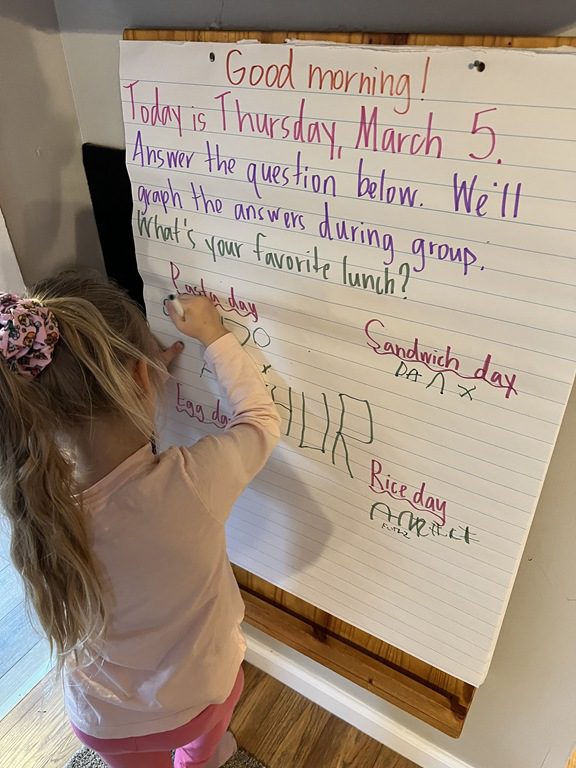 Good morning!
Today is Thursday, March 5.
Answer the question below. We'll
graph the answers during group.
What's your favorite lunch?
Pasta day
Sandwich day
Egg day
Rice day